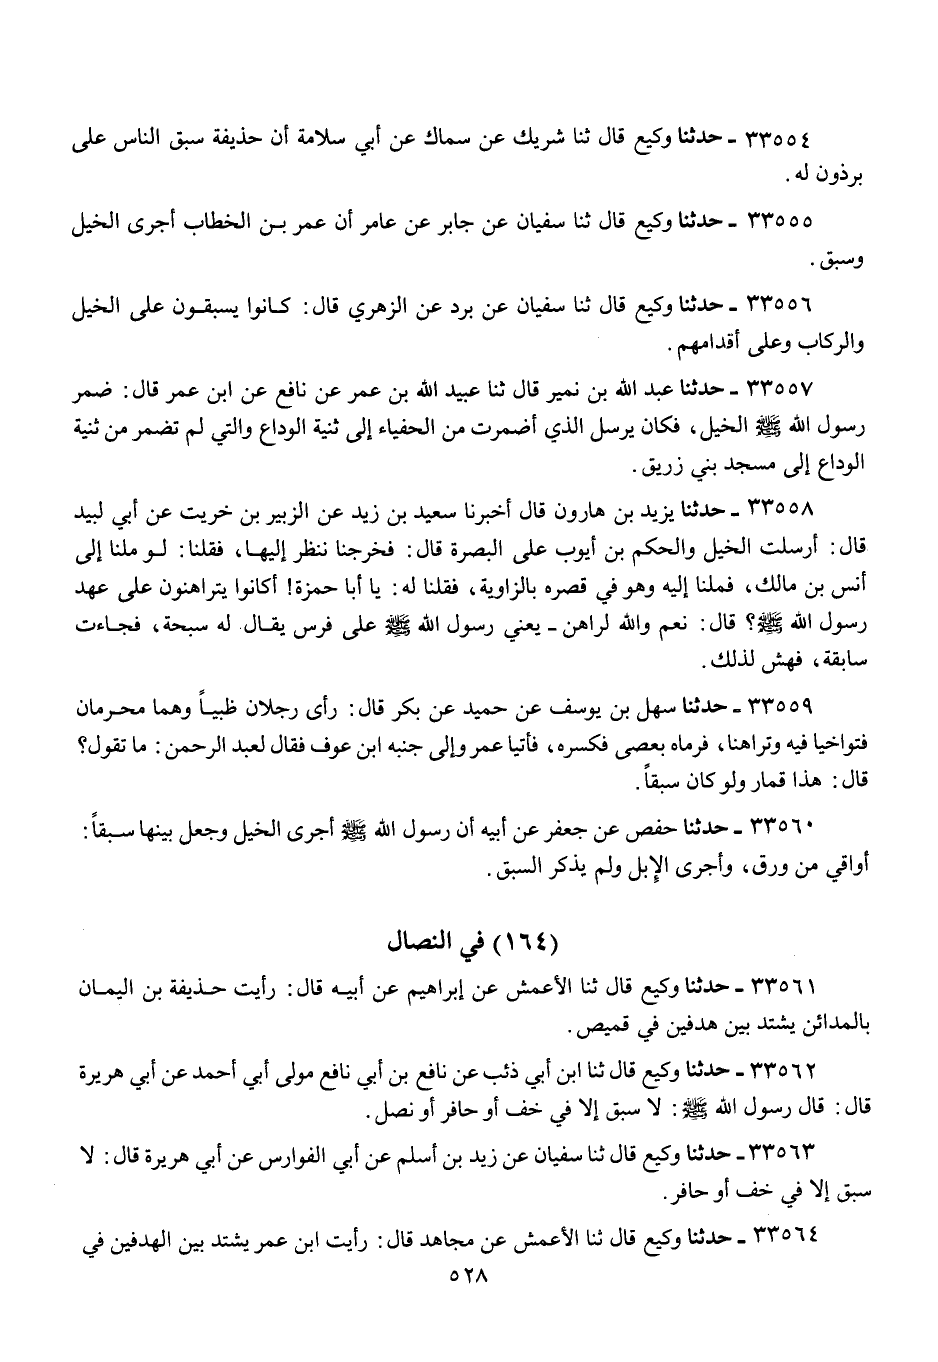 ٣٣٥٥٤ ـ حدثنا وكيع قال ثنا شريك عن سماك عن أبي سلامة أن حذيفة سبق الناس على
برذون له.
٣٣٥٥٥ ـ حدثنا وكيع قال ثنا سفيان عن جابر عن عامر أن عمر بـن الخطاب أجرى الخيل
وسبق.
٣٣٥٥٦ ـ حدثنا وكيع قال ثنا سفيان عن برد عن الزهري قال: كـانوا يسبقـون على الخيل
والركاب وعلى أقدامهم.
٣٣٥٥٧ ـ حدثنا عبد الله بن نمير قال ثنا عبيد الله بن عمر عن نافع عن ابن عمر قال: ضمر
رسول الله ﷺ الخيل، فكان يرسل الذي أضمرت من الحفياء إلى ثنية الوداع والتي لم تضمر من ثنية
الوداع إلى مسجد بني زريق.
٣٣٥٥٨ ـ حدثنا يزيد بن هارون قال أخبرنا سعيد بن زيد عن الزبير بن خريت عن أبي لبيد
قال: أرسلت الخيل والحكم بن أيوب على البصرة قال: فخرجنا ننظر إليهـا، فقلنا: لـو ملنا إلى
أنس بن مالك، فملنا إليه وهو في قصره بالزاوية، فقلنا له: يا أبا حمزة! أكانوا يتراهنون على عهد
رسول الله ﷺ؟ قال: نعم والله لراهن ـ يعني رسول الله ﷺ على فرس يقـال له سبحة، فجـاءت
سابقة، فهش لذلك.
٣٣٥٥٩ ـ حدثنا سهل بن يوسف عن حميد عن بكر قال: رأى رجلان ظبيـاً وهما محـرمان
فتواخيا فيه وتراهنا، فرماه بعصى فكسره، فأتيا عمر وإلى جنبه ابن عوف فقال لعبد الرحمن: ما تقول؟
قال: هذا قمار ولو كان سبقاً.
٣٣٥٦٠ ـ حدثنا حفص عن جعفر عن أبيه أن رسول الله ﷺ أجرى الخيل وجعل بينها سـبقاً:
أواقي من ورق، وأجرى الإبل ولم يذكر السبق.
(١٦٤) في النصال
٣٣٥٦١ ـ حدثنا وكيع قال ثنا الأعمش عن إبراهيم عن أبيـه قال: رأيت حـذيفة بن اليمـان
بالمدائن يشتد بين هدفين في قميص.
٣٣٥٦٢ ـ حدثنا وكيع قال ثنا ابن أبي ذئب عن نافع بن أبي نافع مولى أبي أحمد عن أبي هريرة
قال: قال رسول الله ﷺ: لا سبق إلا في خف أو حافر أو نصل.
٣٣٥٦٣ ـ حدثنا وكيع قال ثنا سفيان عن زيد بن أسلم عن أبي الفوارس عن أبي هريرة قال: لا
سبق إلا في خف أو حافر.
٣٣٥٦٤ ـ حدثنا وكيع قال ثنا الأعمش عن مجاهد قال: رأيت ابن عمر يشتد بين الهدفين في
٥٢٨